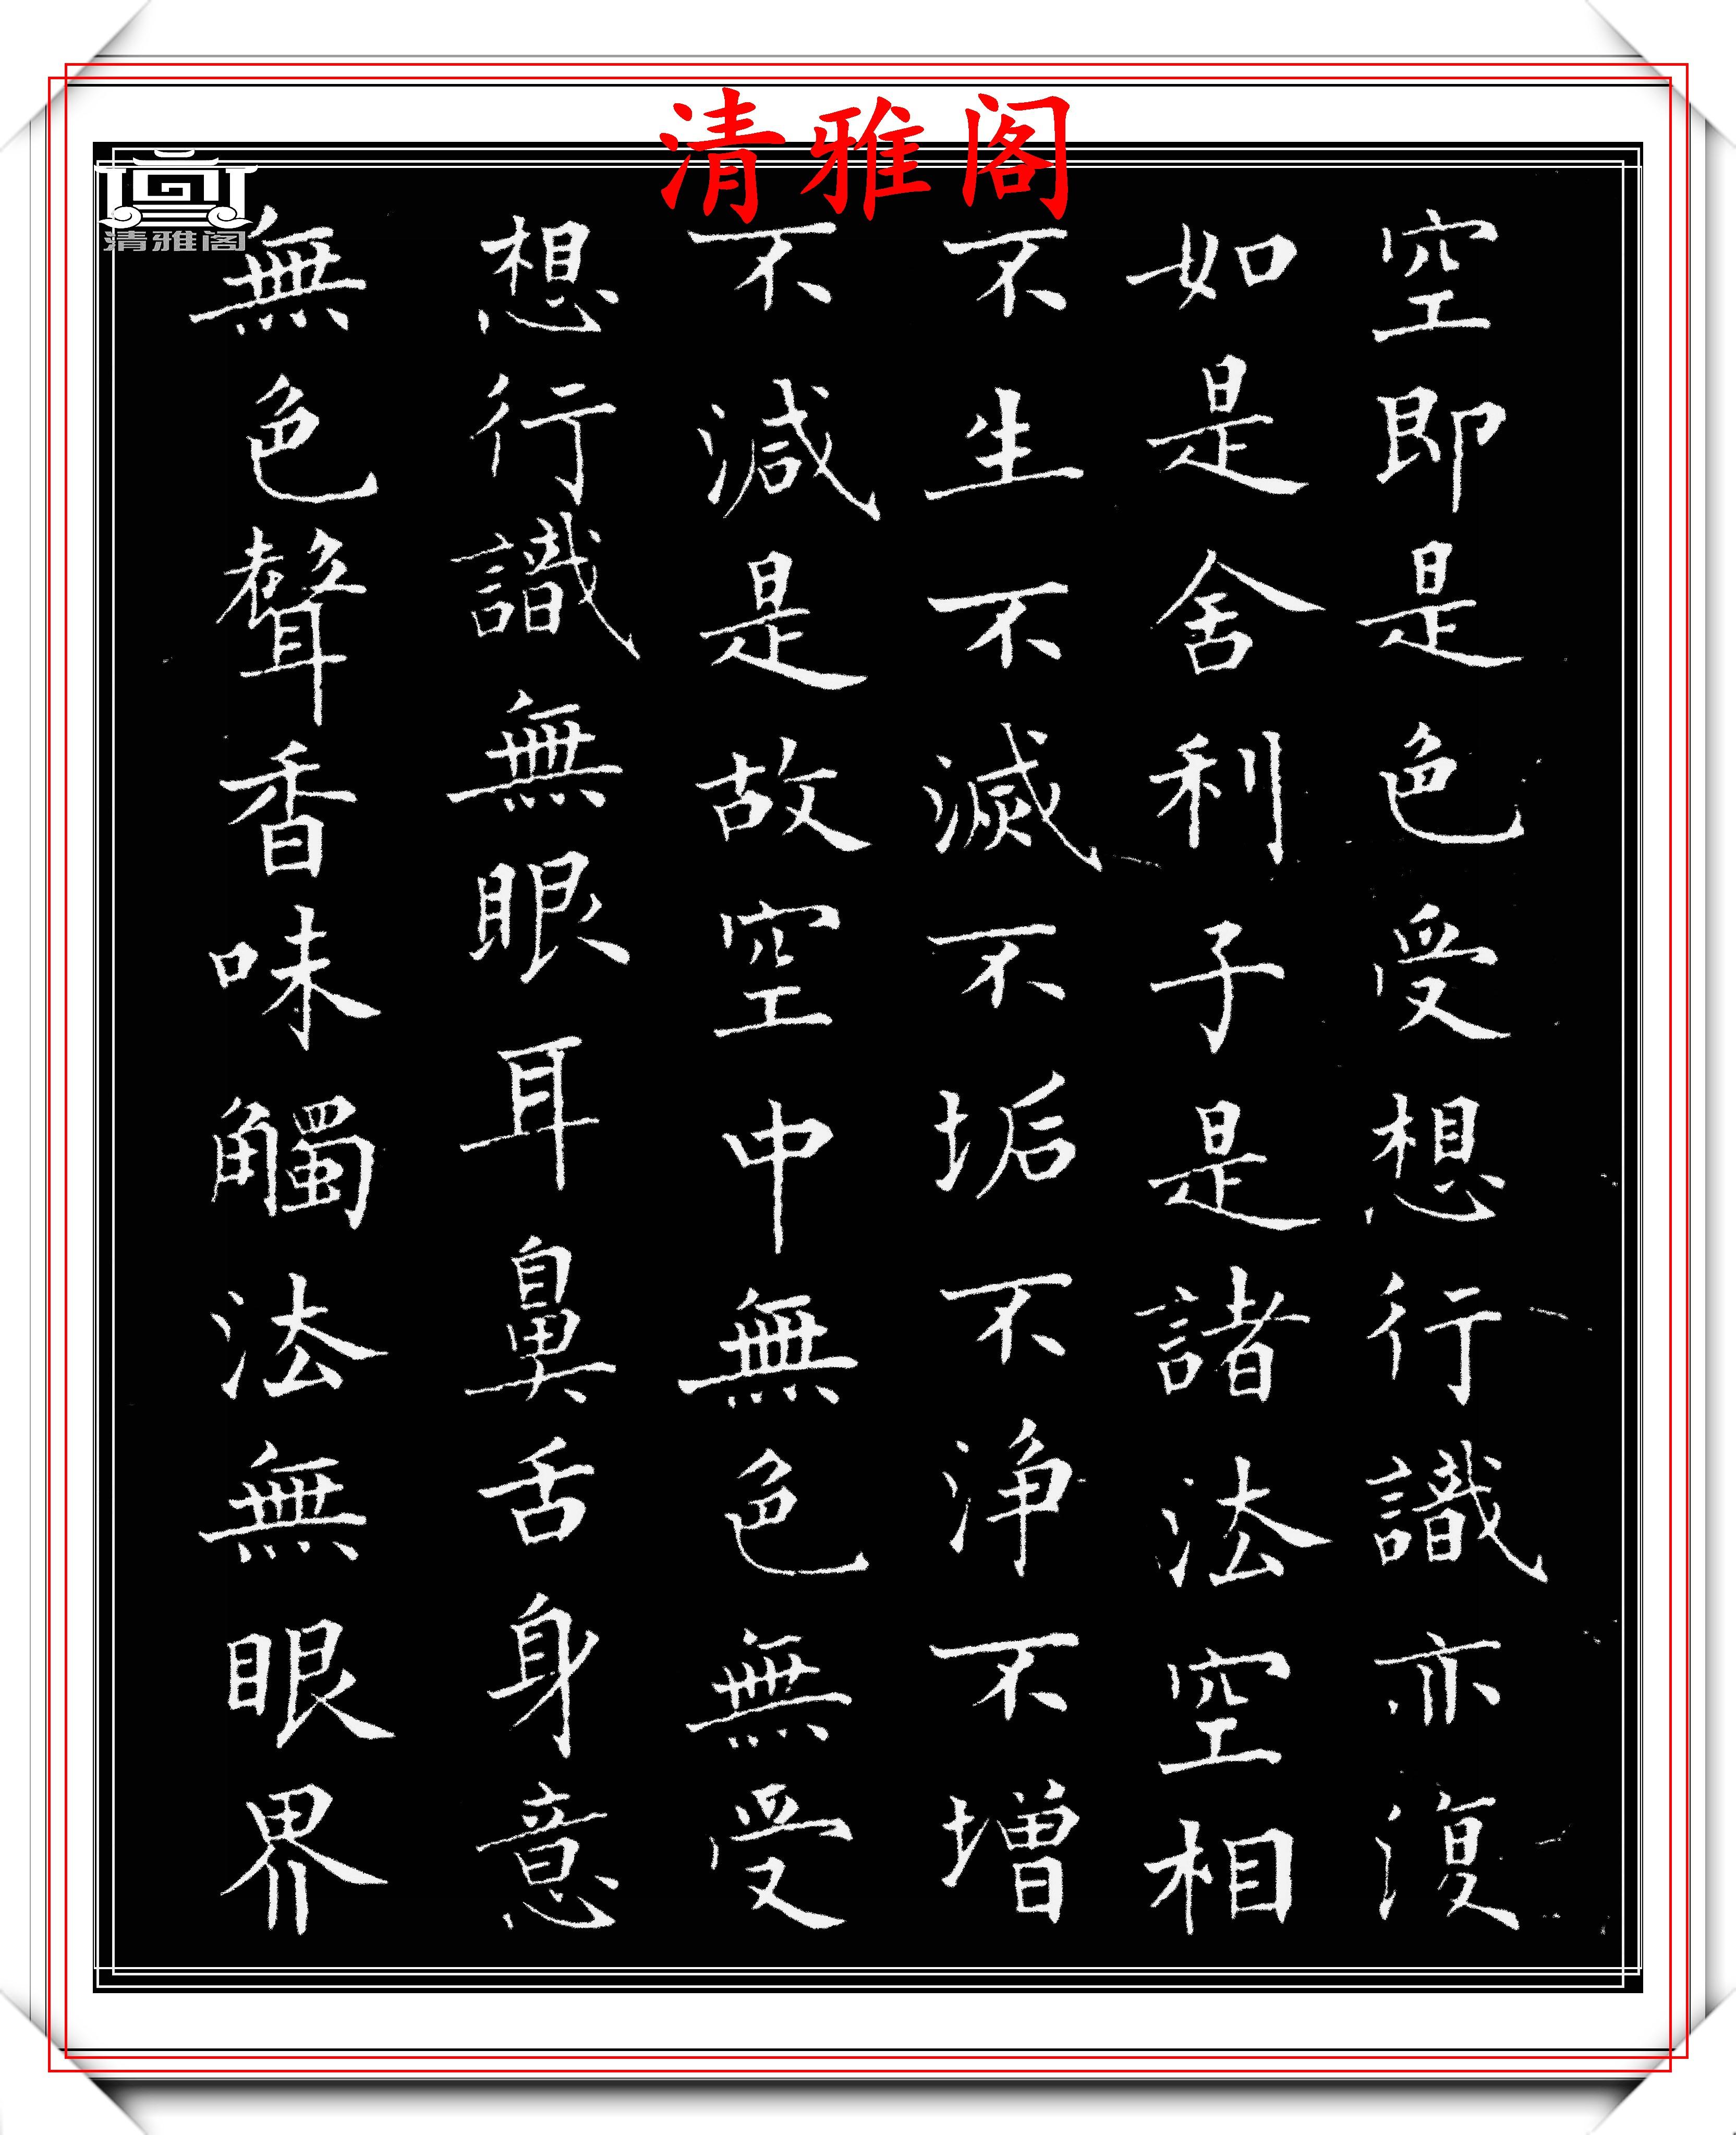 清雅阁
清雅阁
空即是色受想行識亦復
如是舍利子是諸法空相
不生不滅不垢不淨不增
不減是故空中無色無受
想行識無眼耳鼻舌身意
無色聲香味觸法無眼界